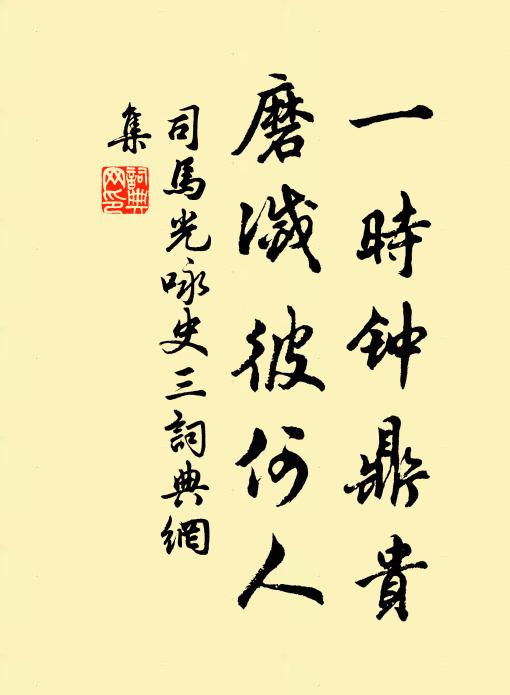 一時钟鼎貴
磨滅彼何人
司馬光咏史三詞典網
集
詞典
网印